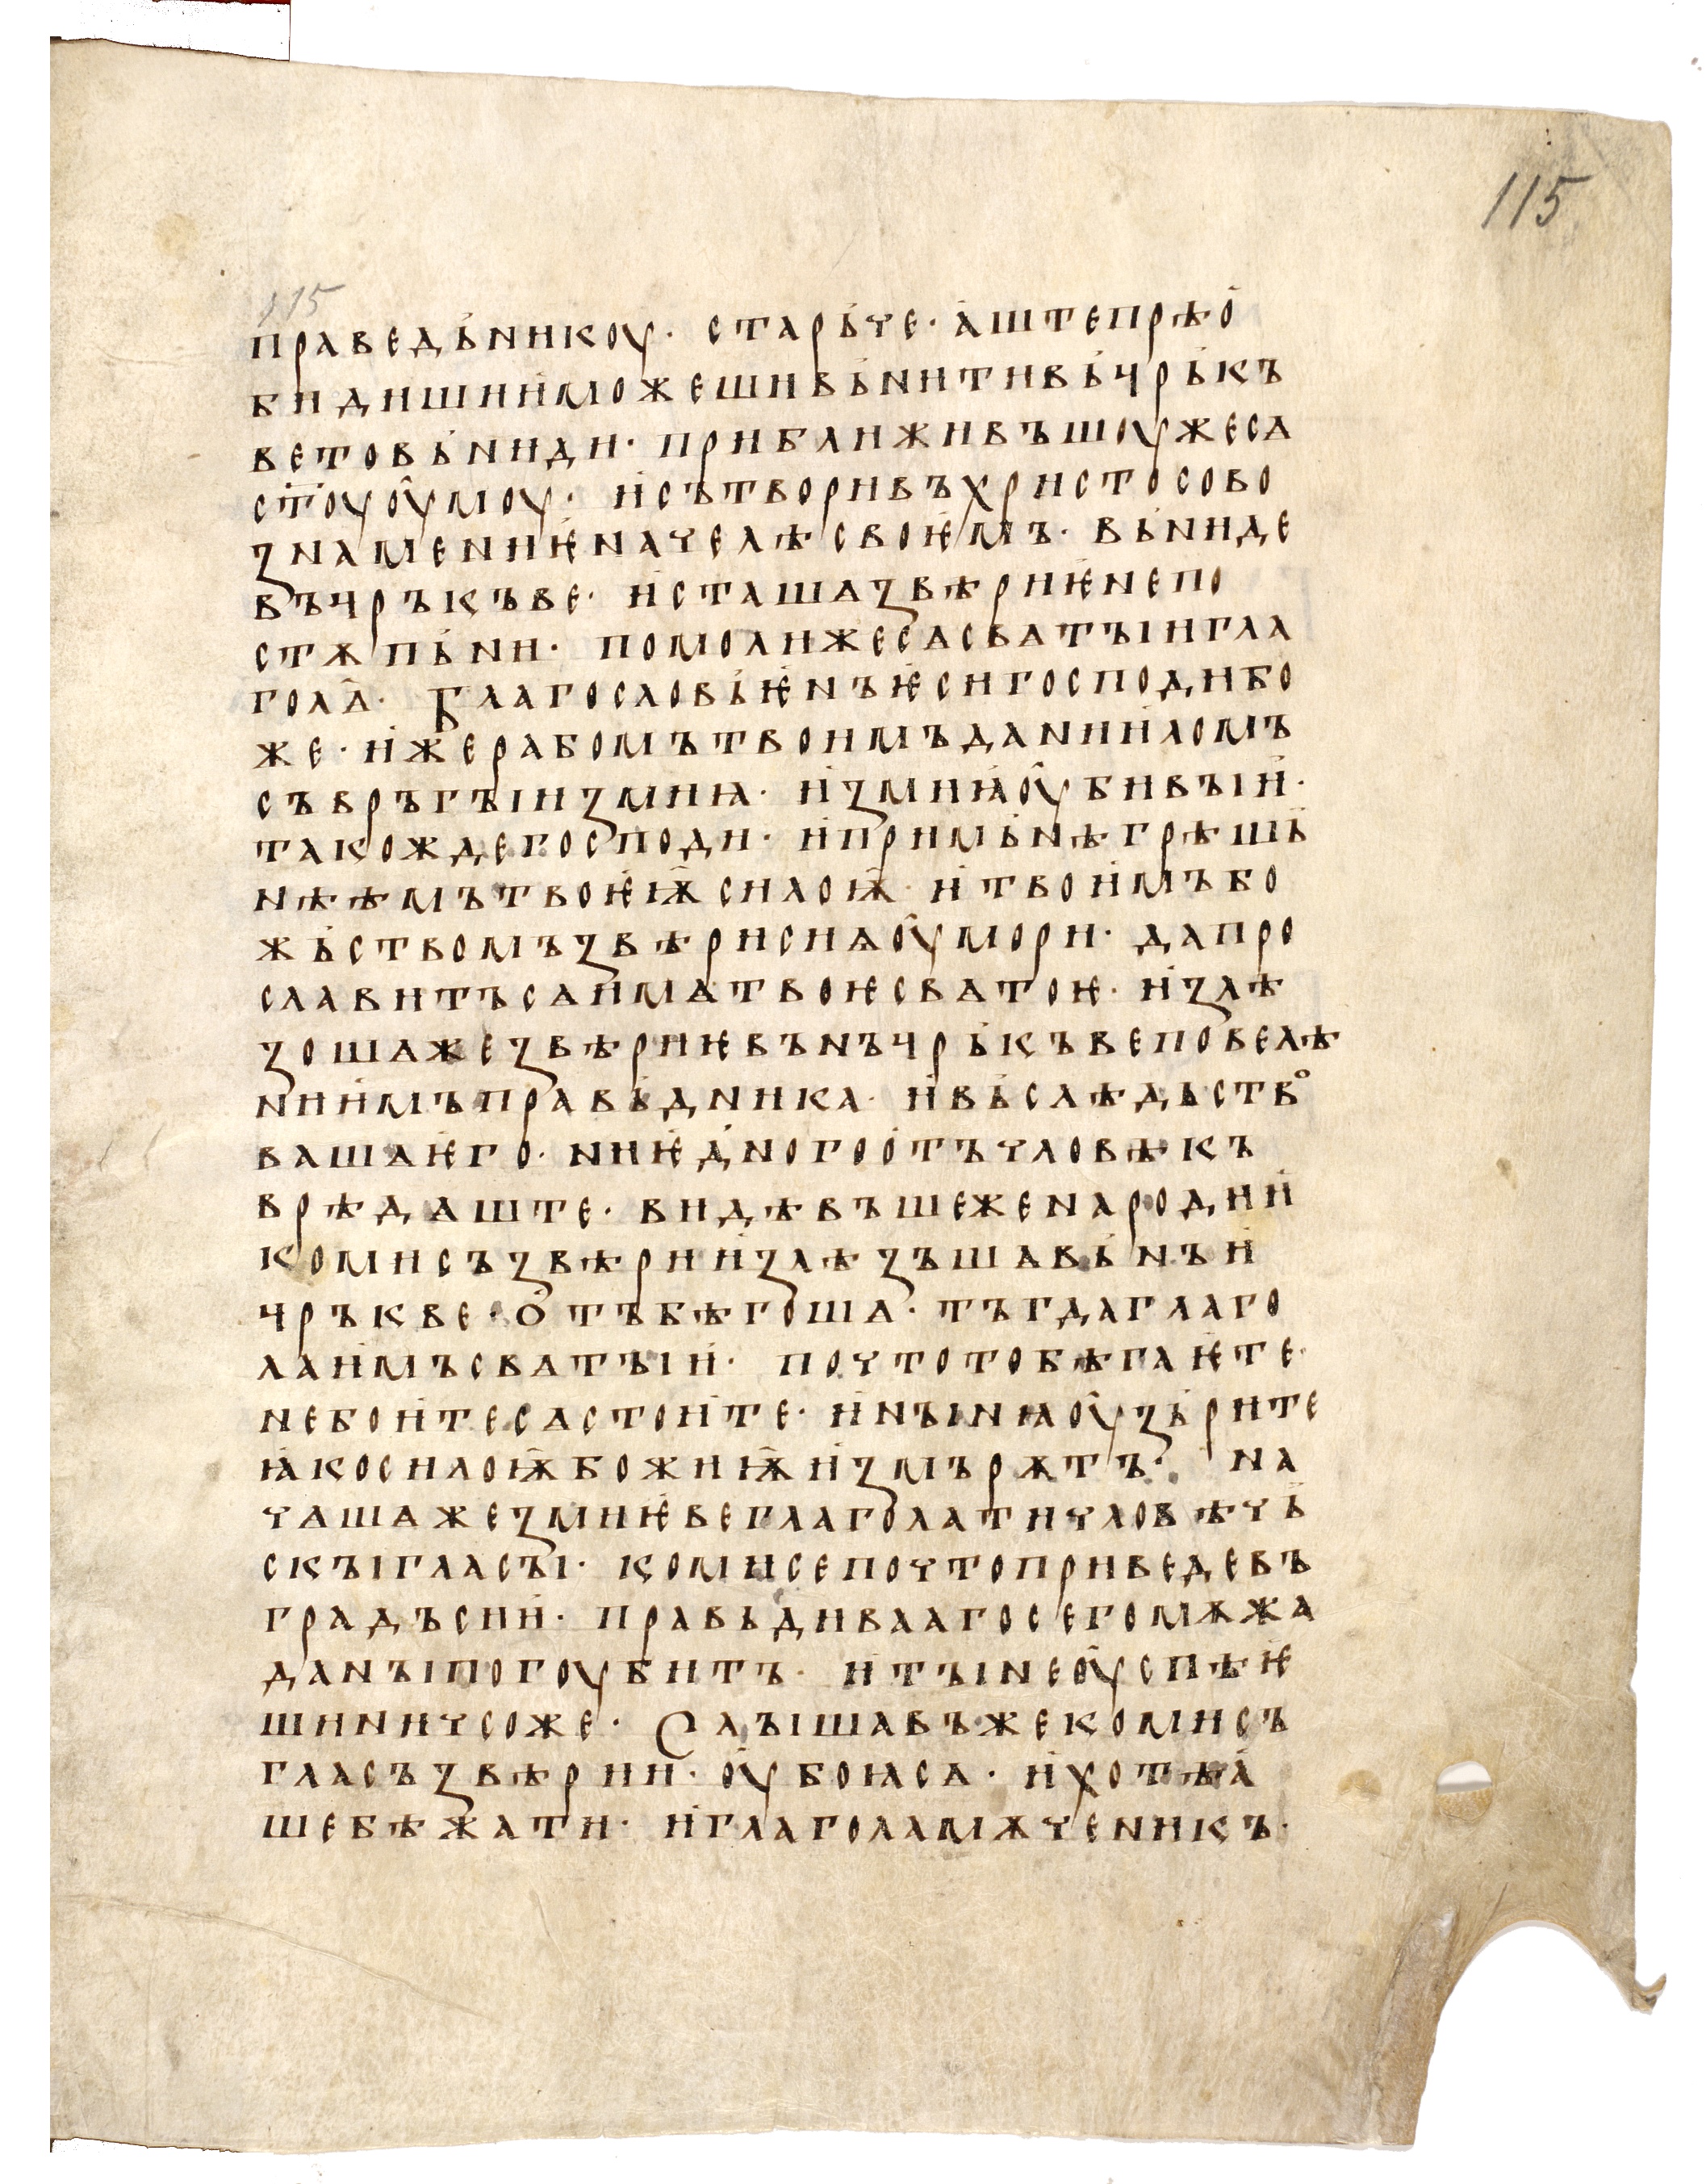 115
115
праведьникоу· старьче· аштепрѣо
бидишинможешивьнитивьчрькъ
ветовьниди· приближивъшоужеса
стоуоумоу· исътворивъхристосово
знамениѥначелѣсвоѥмъ· вьниде
въчръкъве· исташазвѣриѥнепо
стѫпьни· помолижесасватъіигла
гола· благословьѥнъѥсигосподибо
же· ижерабомътвоимъданииломъ
съвръгъіизмиꙗ· измиꙗоубивъіи·
такождегосподи· ипримьнѣгрѣшь
нѣѣмътвоѥѭсилоѭ· итвоимъбо
жьствомъзвѣрисиѧоумори· дапро
славитъсаиматвоѥсватоѥ· излѣ
зошажезвѣриѥвънъчрькъвеповелѣ
ниимъправьдника· ивьслѣдьство
вашаѥго· ниѥдногоотъчловѣкъ
врѣдаште· видѣвъшеженародии
комисъзвѣриизлѣзъшавьнъи
чръкве· отъбѣгоша· тъгдаглаго
лаимъсватъіи· почтотобѣгаѥте·
небоитесастоите· инъінꙗоузьрите
ꙗкосилоѭбожиѭизмърѫтъ· на
чашажезмиѥвеглаголатичловѣчь
скъігласъі· комисепочтоприведевъ
градъсии· правьдиваагосегомѫжа
данъіпогоубитъ· итъінеоуспѣѥ
шиничсоже· слъішавъжекомисъ
гласъзвѣрии· оубоꙗса· ихотѣа
шебѣжати· иглаголамѫченикъ·